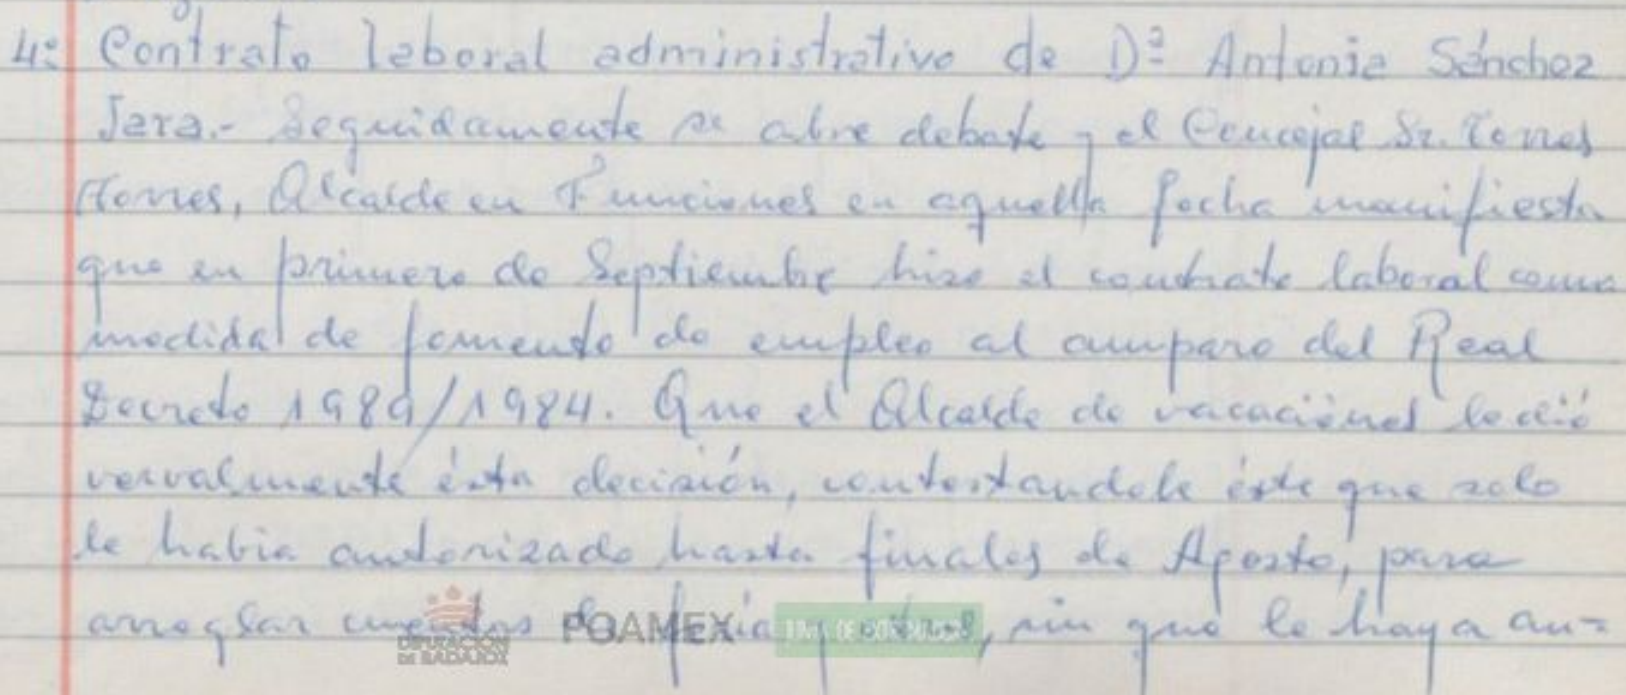 4º Contrato laboral administrativo de Dª Antonia Sánchez
Jara.- Seguidamente se abre debate y el Concejal Sr. Torres
Torres, Alcalde en Funciones en aquella fecha manifiesta
que en primero de Septiembre hizo el contrato laboral como
medida de fomento de empleo al amparo del Real
Decreto 1989/1984. Que el Alcalde de vacaciones le dió
vervalmente ésta decisión, contestandole éste que solo
le habia autorizado hasta finales de Agosto, para
arreglar cuentas de feria y otras, sin que le haya au=
DIPUTACIÓN
DE BADAJOZ
POAMEX